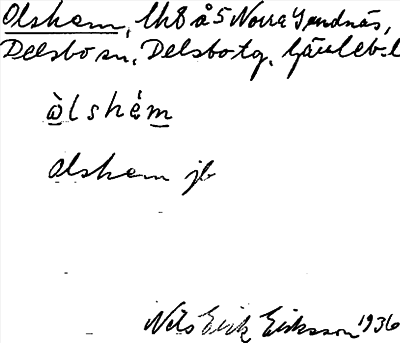 Olshem, lh 8 å 5 Norra Sundnäs,
Delsbo sn, Delsbo tg, Gävleb. l
òlshém
Olshem jb
Nils Erik Eriksson 1936